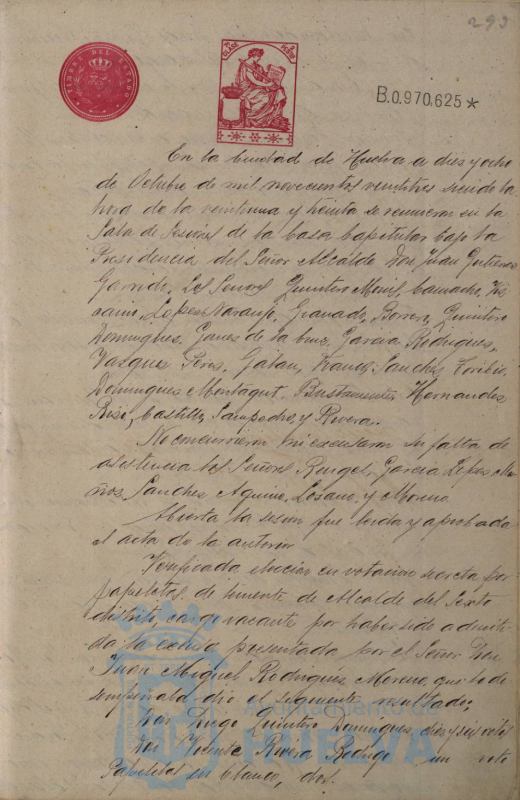 293
TIMBRE DEL ESTADO
B.0.970.625*
En la ciudad de Huelva a diez y ocho
de Octubre de mil novecientos veintitres siendo la
hora de la veintiuna y treinta se reunieron en la
Sala de Sesiones de la Casa Capitular bajo la
Presidencia del Señor Alcalde Don Juan Gutierrez
Garrido, los Señores Quintero Camacho, Viz
caino, Lopez Naranjo, Granado, Borrero, Quintero
Dominguez, Garcia Rodriguez,
Vazquez Perez, Galan, Sanchez Toribio,
Dominguez Montagut, Bustamante, Hernandez
Castilla, Sampedro, y Rivera.
No concurrieron ni excusaron su falta de
asistencia los Señores Rengel, Garcia Lopez Mu
ñoz, Sanchez Aquino, Lozano, y Moreno
Abierta la sesion fue leida y aprobada
el acta de la anterior
Verificada eleccion en votacion secreta por
papeletas, de teniente de Alcalde del Sexto
distrito, cargo vacante por haber sido admiti
da la excusa presentada por el Señor Don
Juan Miguel Rodriguez Moreno, que lo de
sempeñaba dio el siguiente resultado:
Don Diego Quintero Dominguez, diez y seis votos
Don Vicente Rivera un voto
Papeletas en blanco, dos.
Ayuntamiento de
HUELVA